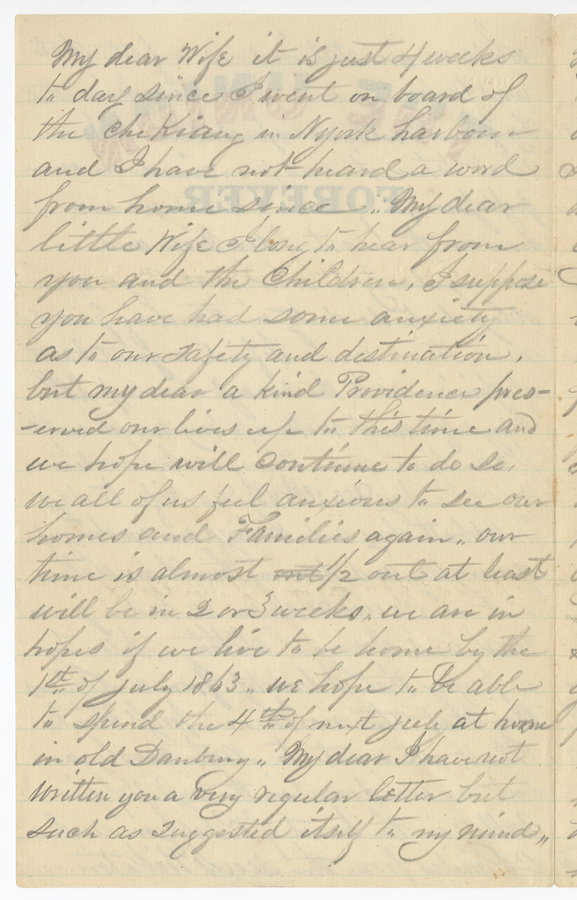 My dear Wife it is just 4 weeks
to day since I went on board of
the CheKiang in N, York harbour
and I have not heard a word
from home since „ My dear
little Wife I long to hear from
you and the Children, I suppose
you have had some anxiety
as to our safety and destination,
but my dear a kind Providence pres-
-erved our lives up to this time and
we hope will continue to do so,
we all of us feel anxious to see our
homes and Families again „ our
time is almost 1/2 out at least
will be in 2 or 3 weeks „ we are in
hopes if we live to be home by the
1st of July 1863 „ we hope to be able
to spend the 4th of next July at home
in old Danbury „ My dear I have not
written you a very regular letter but
such as suggested itself to my mind „
FOREVER